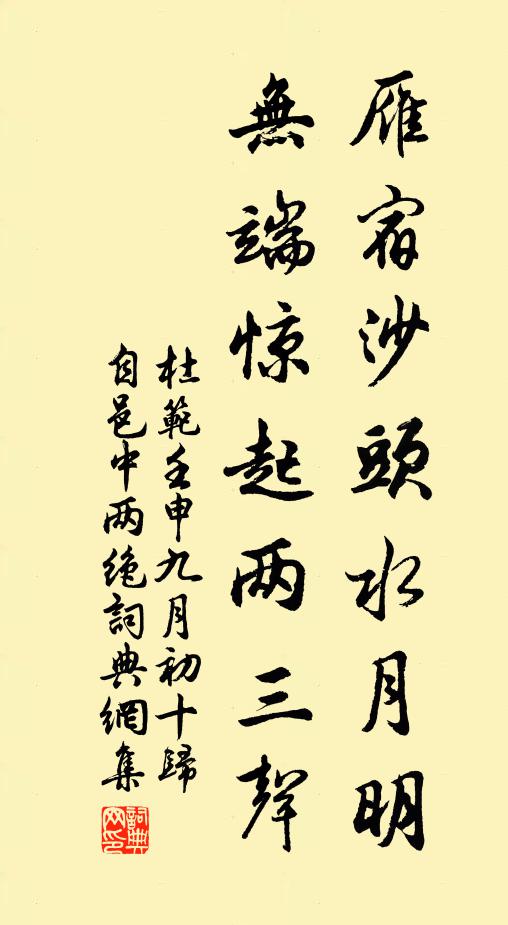 雁宿沙頭水月明
無端惊起两三聲
杜範壬申九月初十歸
自邑中两絶詞典網集
詞典
网印